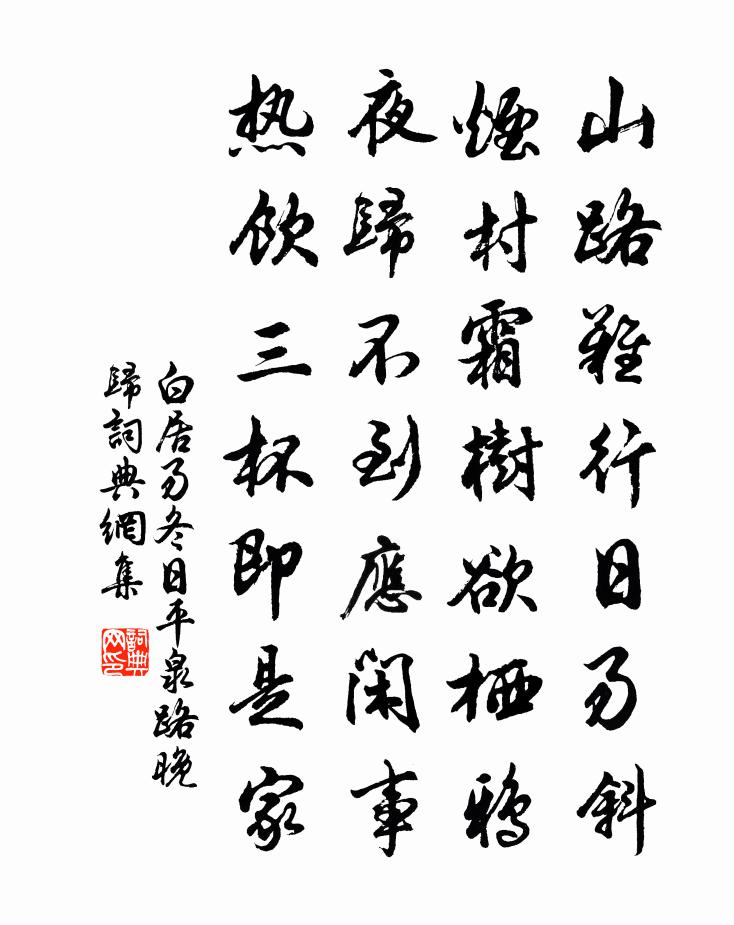 山路難行日易斜
煙村霜樹欲栖鴉
夜歸不到應閑事
热飲三杯即是家
白居易冬日平泉路晚
歸詞典網集
詞典网印